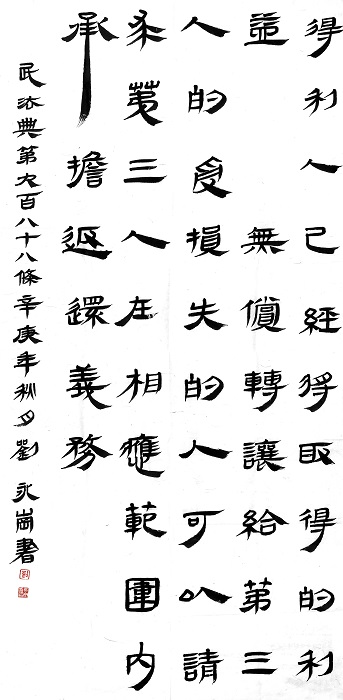 得利人已經將取得的利
益無償轉讓給第三
人的受損失的人可以請
求第三人在相應範圍內
承擔返還義務
民法典第九百八十八條辛庚年秋月劉永崗書